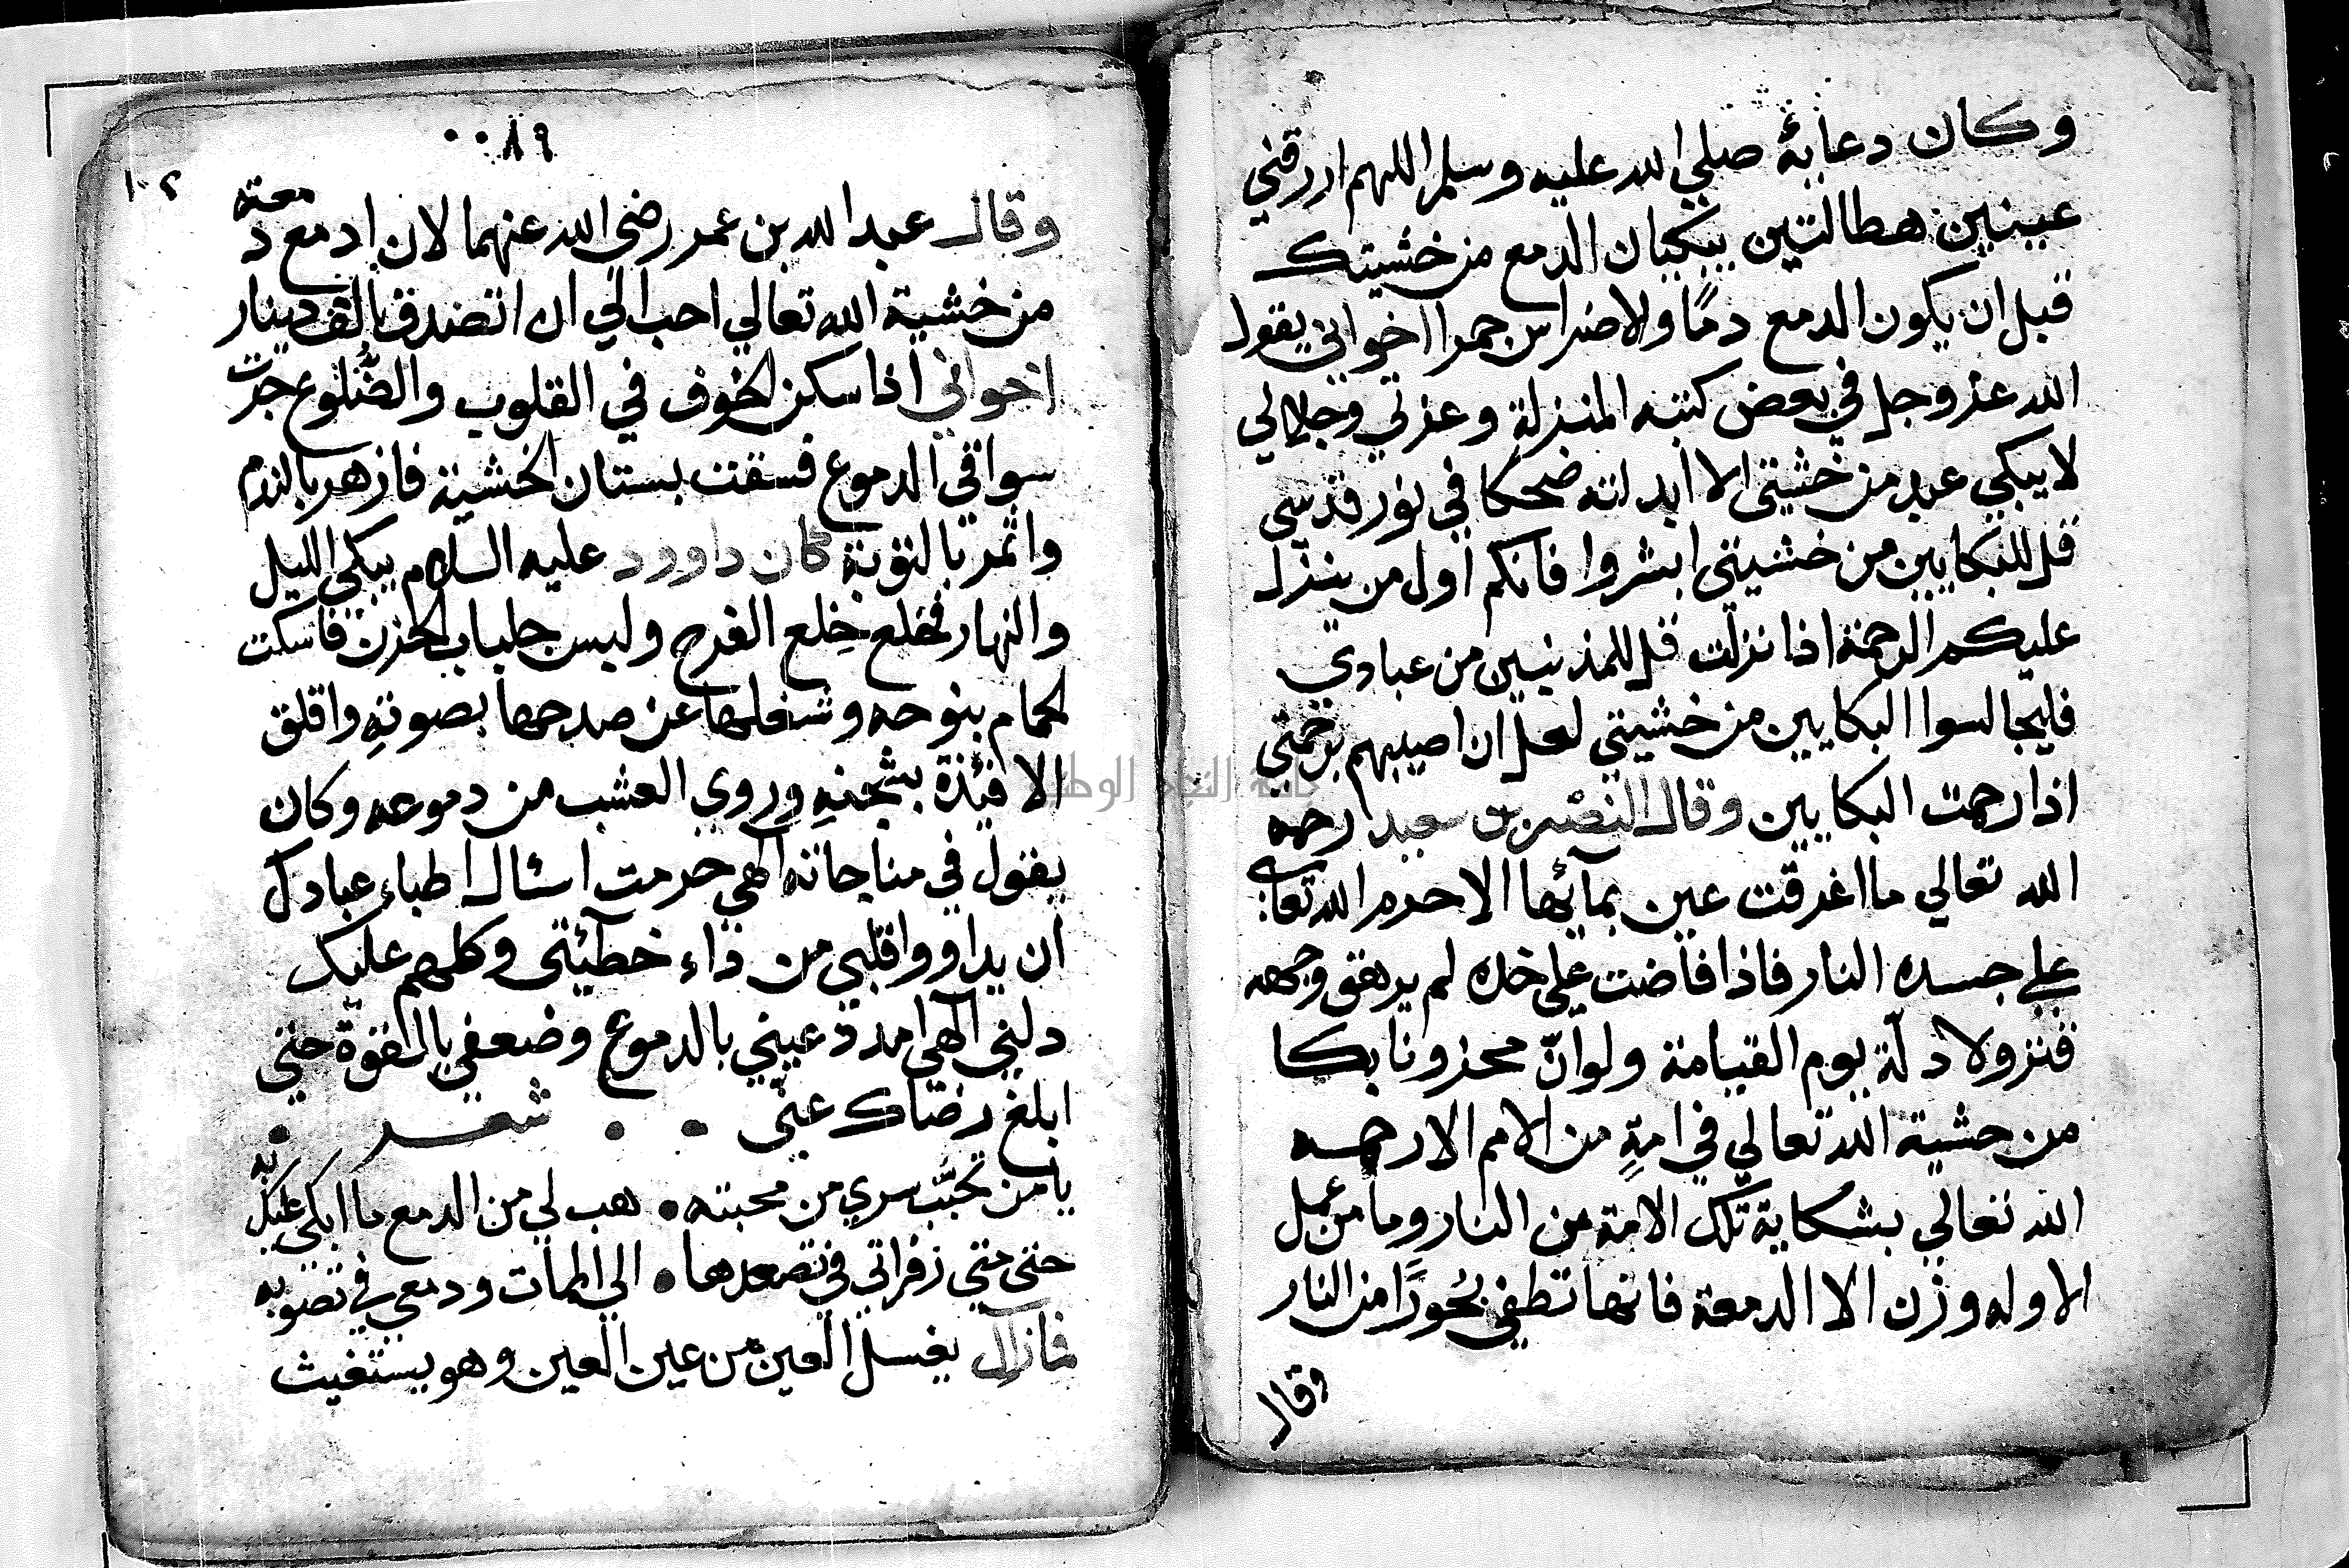 وكان دعابهُ صلي الله عليه وسلم اللهم ارزقني
عينين هطالتين يبكيان الدمع من خشيتك
قبل ان يكون الدمع دمًا والاضراس جمرا اخواني يقول
الله عز وجل في بعض كتبه المنزلة وعزتي وجلالي
لا يبكي عبد من خشيتي الا ابدلته ضحكا في نور قدسي
قل للبكايين من خشيتي ابشروا فانكم اول من ينزل
عليكم الرحمة اذا نزلت قل للمذنبين من عبادي
فليجالسوا البكايين من خشيتي لعل ان اصيبهم برحمتي
اذا رحمت البكايين وقال النضر بن سعيد رحمه
الله تعالي ما اغرقت عين بمآئها الا حرم الله تعالي
علي جسده النار فاذا فاضت علي خده لم يرهق وجهه
قتر ولا ذلة يوم القيامة ولو انّ محزونا بكا
من خشية الله تعالي في امةٍ من الامم الا رحمه
الله تعالي بشكاية تلك الامة من النار وما من عمل
الا وله وزن الا الدمعة فانها تطفي بُحورًا من النار
وقال
٠٠٨٩
١٠٢
وقال عبد الله بن عمر رضي الله عنهما لان ادمع دمعة
من خشية الله تعالي احب الي ان اتصدق بالف دينار
اخواني اذا سكن الخوف في القلوب والضُّلوع جرت
سواقي الدموع فسقت بستان الخشية فازهر بالندم
واثمر بالتوبة كان داوود عليه السلام يبكي الليل
والنهار فخلع خِلع الفرح ولبس جلباب الحزن فاسكت
الحمام بنوحه وشغلها عن صدحها بصوتهِ واقلق
الافئدة بشجنهِ وروي العشب من دموعه وكان
يقول في مناجاته آلهي حرمت اسئال اطباء عبادك
ان يداووا قلبي من داء خطيئتي وكلهم عليك
دلني آلهي امدد عيني بالدموع وضعفي بالقوة حتي
ابلغ رضاك عنّي شعر
يا من تجنّب سري من محبته هب لي من الدمع ما ابكي عليك به
حتي متي زفراتي في تصعدها الي الممات ودمعي في تصوبه
فما زال يغسل العين من عين العين وهو يستغيث